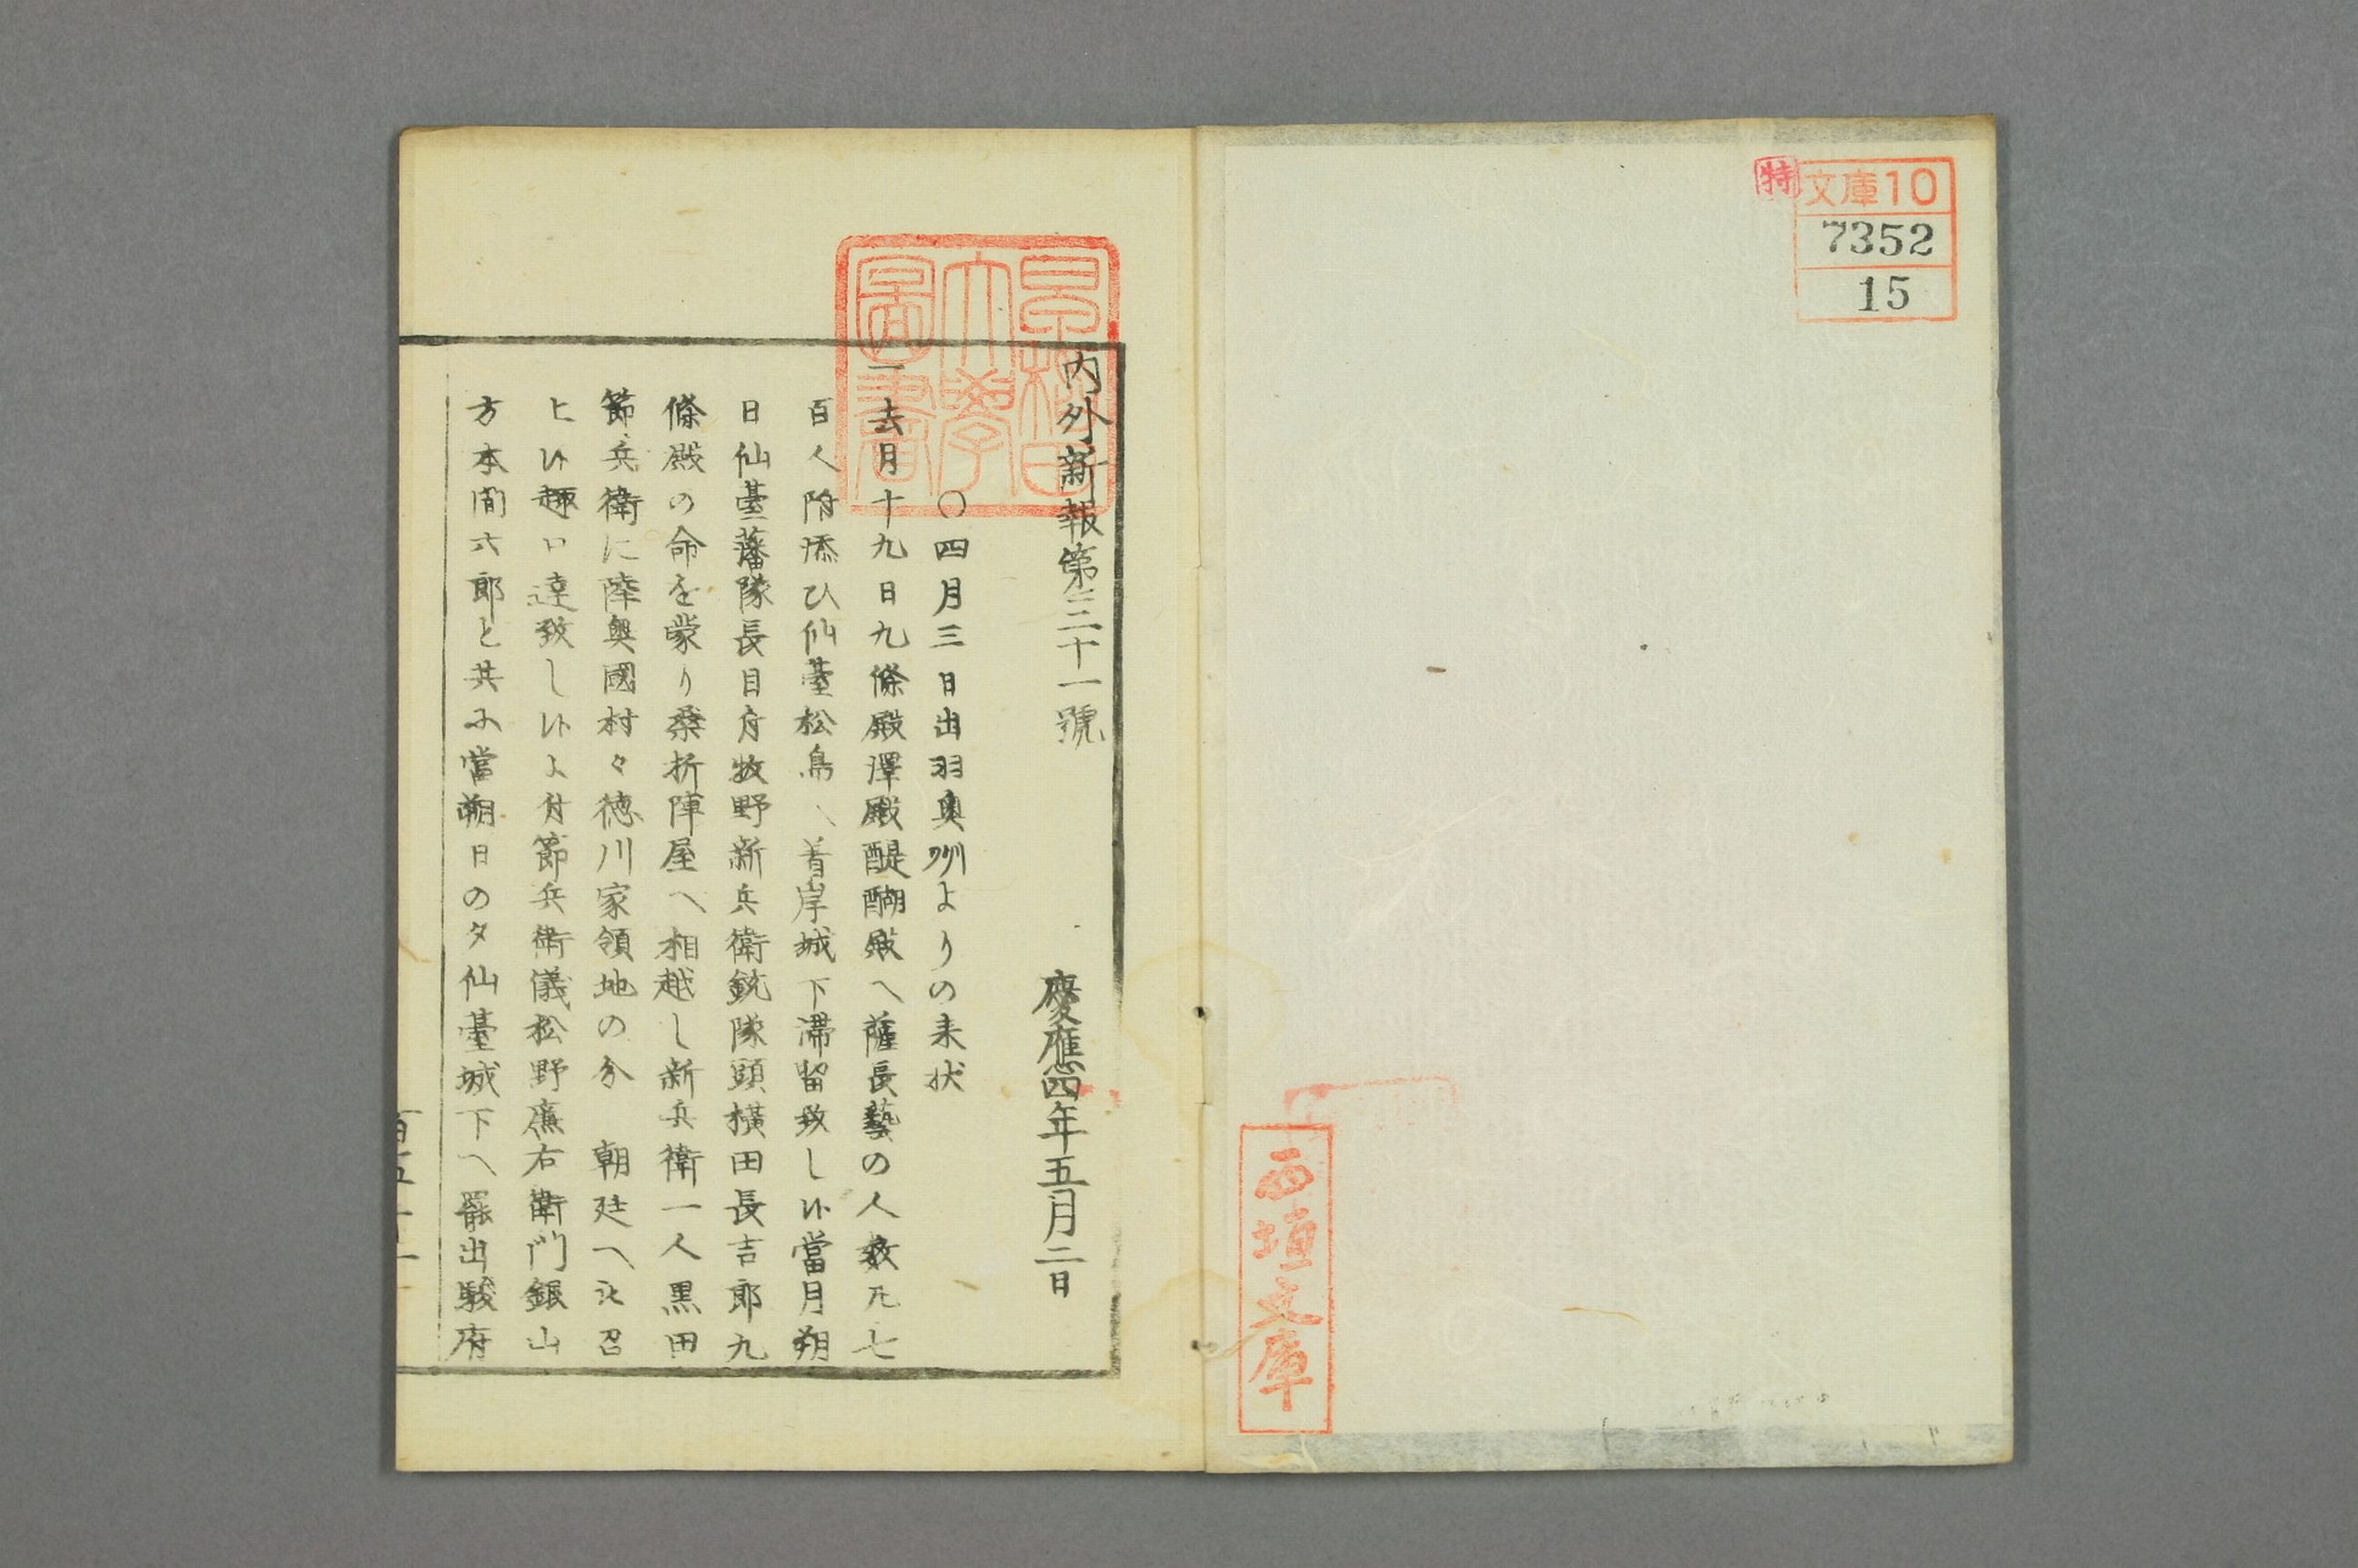 特
文庫10
7352
15
西垣文庫
早稲田大學圖書
内外新報第三十一號
慶應四年五月二日
〇四月三日出羽奥州よりの来状
一去月十九日九條殿澤殿醍醐殿へ薩長藝の人数凡七
百人附添ひ仙臺松島へ着岸城下滞留致し候當月朔
日仙臺藩隊長目付牧野新兵衛銃隊頭横田長吉郎九
條殿の命を蒙り桑折陣屋へ相越し新兵衛一人黒田
節兵衛に陸奥國村々徳川家領地の分 朝廷へ被召
上候趣口達致し候よ付節兵衛儀松野廉右衛門銀山
方本間六郎と共に當朔日の夕仙臺城下へ罷出駿府